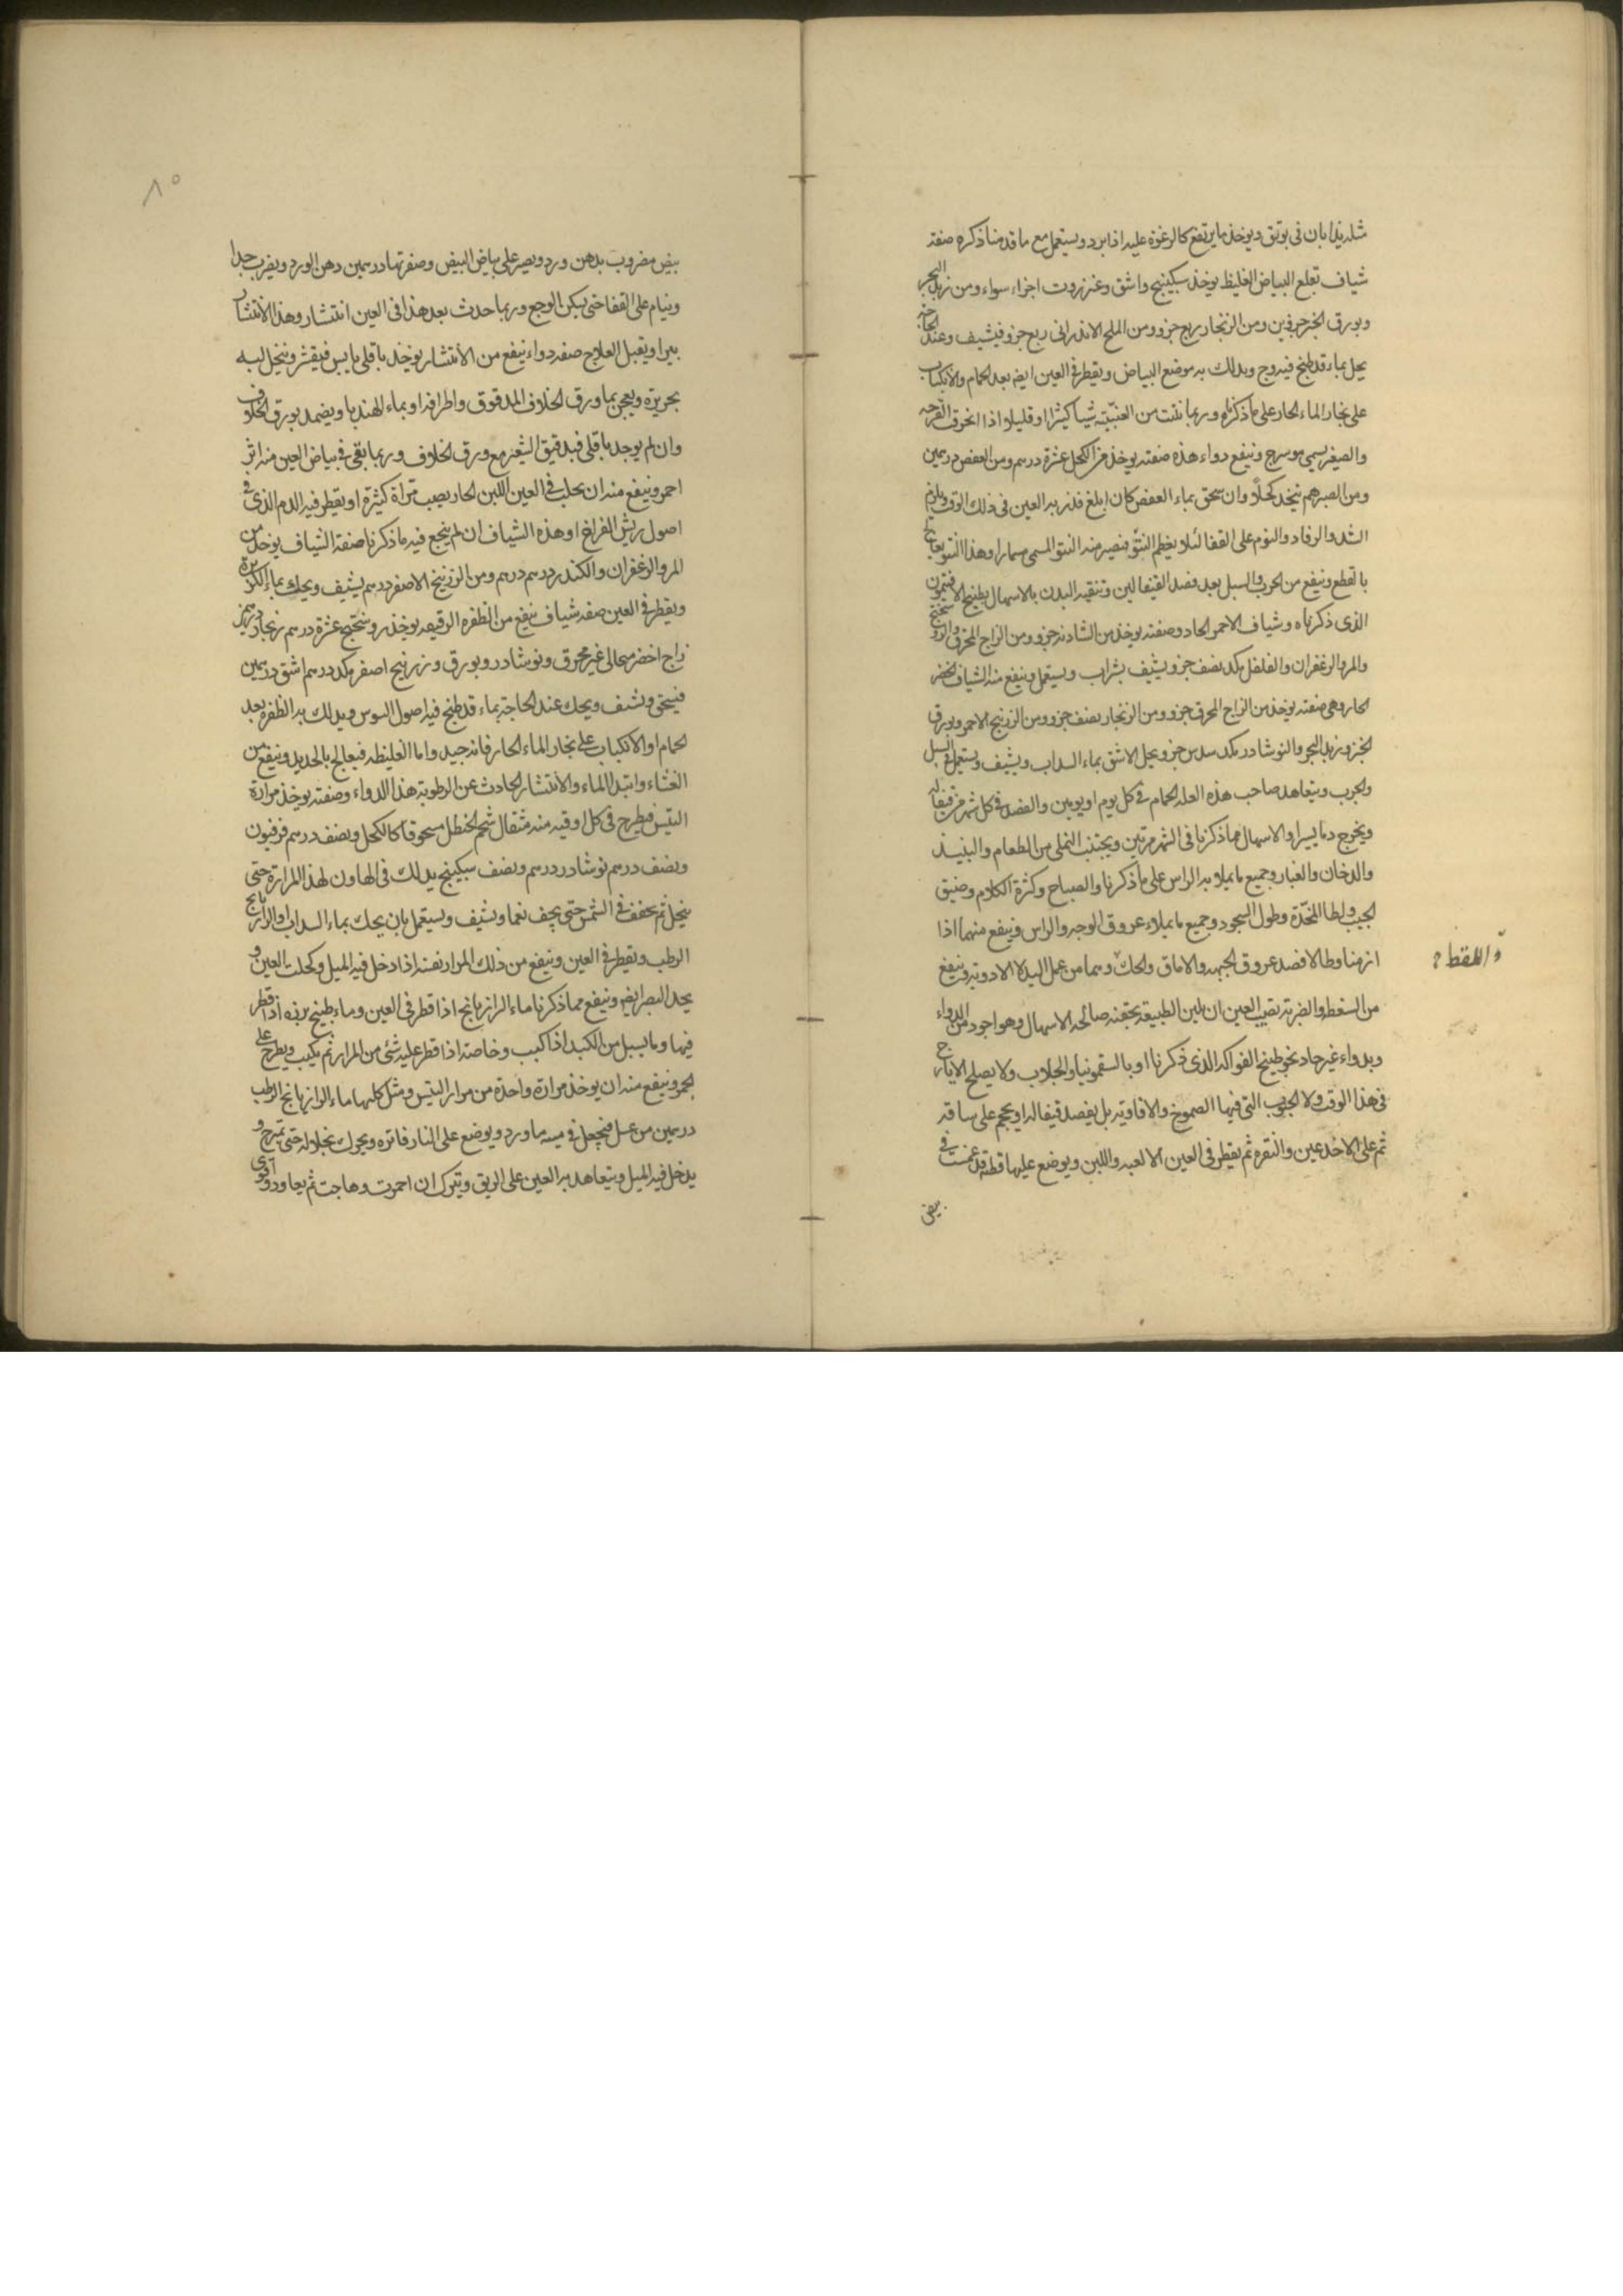 مثله يذابان في بوتق ويوخذ ما يرتفع كالرغوة عليه اذا برد ويستعمل مع ما قدمنا ذكره صفة
شياف تقلع البياض الغليظ يوخذ سكبينج واشق وعنزروت اجزاء سواء ومن زبد البحر
وبورق الخبز جزوين ومن الزنجار ربع جزو ومن الملح الاندراني ربع جزو فيشيف وعند الحاجة
يحل بماء قد طبخ فيه وج ويدلك به موضع البياض ويقطر في العين ايضا بعد الحمام والانكباب
على بخار الماء الحار على ما ذكرناه وربما نتت من العنبيّة شيا كثيرا او قليلا اذا انخرق القرحه
والصغير يسمي مورسرج وينفع دواء هذه صفته يوخذ من الكحل عشرة درهم ومن العفص درهمين
ومن الصبر درهم يتخذ كحلاً وان سحق بماء العفص كان ابلغ فذر به العين في ذلك الوقت ويلزم
الشد والرفاد والنوم على القفا لئلا يعظم النتوّ فيصير منه النتو المسمى مسمارا وهذا النتو يعالج
بالقطع وينفع من الجرب والسبل بعد فصد القيفالين وتنقيه البدن بالاسهال بطبيخ الافتيمون
الذي ذكرناه وشياف الاحمر الحاد وصفته يوخذ من الشادنه جزو ومن الزاج المحرق والروسختج
والمر والزعفران والفلفل مكد نصف جزو ويشيف بشراب ويستعمل وينفع منه الشياف الاخضر
الحار وهي صفته يوخذ من الزاج المحرق جزو ومن الزنجار نصف جزو ومن الزرنيخ الاحمر وبورق
الخبز وزبد البحر والنوشادر مكد سدس جزو ويحل الاشق بماء السداب ويشيف ويستعمل في السبل
والجرب ويتعاهد صاحب هذه العلة الحمام في كل يوم او يومين والفصد في كل شهر من قيفاله
ويخرج دما يسيرا والاسهال مما ذكرنا في الشهر مرتين ويجتنب التملى من الطعام والنبيذ
والدخان والغبار وجميع ما يملا به الراس على ما ذكرنا والصياح وكثرة الكلام وضيق
الجيب ولطا المخدّة وطول السجود وجميع ما يملاء عروق الوجه والراس وينفع منهما اذا
ازمنا وطالا فصد عروق الجبهه والاماق والحك وهما من عمل اليد لا الادوية وينفع
من السقطه والضربة تصيب العين ان يلين الطبيعة بحقنه صالحه الاسهال وهو اجود من الدواء
وبدواء غير حاد نحو طبيخ الفواكه الذي ذكرنا او بالسقمونيا والجلاب ولا يصلح الايارج
في هذا الوقت ولا الحبوب التي فيها الصموغ والافاويه بل يفصد قيفاله او يحجم على ساقه
ثم على الاخدعين والنقره ثم يقطر في العين الالعبه واللبن ويوضع عليها قطنه قد غمست في
بيض
واللقط
٨٥
بيض مضروب بدهن ورد ويصير على بياض البيض وصفرتها درهمين دهن الورد ويضرب جدا
وينام على القفا حتى يسكن الوجع وربما حدث بعد هذا في العين انتشار وهذا الانتشار
يبرا ويقبل العلاج صفه دواء ينفع من الانتشار يوخذ باقلى يابس فيقشر وينخل لبه
بحريرة ويعجن بما ورق الخلاف المدقوق واطرافه او بماء الهندبا ويضمد بورق الخلاف
وان لم يوجد باقلى فبدقيق الشعير مع ورق الخلاف وربما بقى في بياض العين منه اثر
احمر وينفع منه ان يحلب في العين اللبن الحار يصب مراة كثيرة او يقطر فيه الدم الذي في
اصول ريش الفراخ او هذه الشياف ان لم ينجع فيه ما ذكرنا صفة الشياف يوخذ من
المر والزعفران والكندر درهم درهم ومن الزرنيخ الاصفر درهم يشيف ويحك بماء الكزبره
ويقطر في العين صفه شياف ينفع من الظفره الرقيقه يوخذ روسختج عشرة درهم زنجار درهمين
زاج اخضر محالى غير محرق ونوشادر وبورق وزرنيخ اصفر مكد درهم اشق درهمين
فيسحق ويشيف ويحك عند الحاجة بماء قد طبخ فيه اصول السوس ويدلك به الظفره بعد
الحمام او الانكباب على بخار الماء الحار فانه جيد واما الغليظه فيعالج بالحديد وينفع من
الغشاء وابتدا الماء والانتشار الحادث عن الرطوبة هذا الدواء وصفته يوخذ مرارة
التيس فيطرح في كل اوقيه منه مثقال شحم الحنظل مسحوقا كالكحل ونصف درهم فرفيون
ونصف درهم نوشادر درهم ونصف سكبينج يدلك في الهاون لهذا المرارة حتى
ينحل ثم يجفف في الشمس حتى يجف نعما ويشيف ويستعمل بان يحك بماء السداب او الرازيانج
الرطب ويقطر في العين وينفع من ذلك المرار نفسه اذا دخل فيه الميل وكحلت العين و
يحد البصر ايضا وينفع مما ذكرنا ماء الرازيانج اذا قطر في العين وماء طبيخ برنه اذا قطر
فيها وما يسيل من الكبد اذا كبب وخاصة اذا قطر عليه شئ من المرار ثم يكبب ويطرح على
الجمر وينفع منه ان يوخذ مرارة واحدة من مرار التيس ومثل كلها ماء الرازيانج الرطب
درهمين من عسل فيجعل في ماورد ويوضع على النار فاتره ويحرك حتى تمزج و
يدخل فيه الميل ويتعاهد به العين على الريق ويترك ان احمرت وهاجت ثم يعاود واقوى